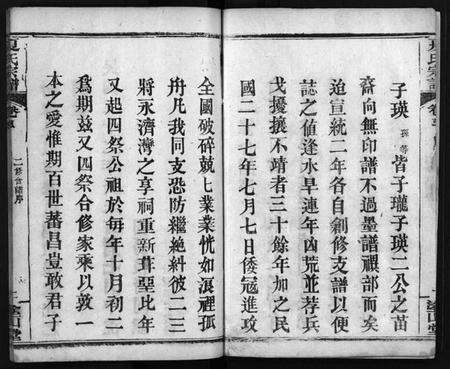 子瑛孫等皆子瓏子瑛二公之苗
裔向無印譜不過墨譜禩部而矣
迨宣統二年各自創修支譜以便
誌之値逢水旱連年凶荒並荐兵
戈擾攘不靖者三十餘年加之民
國二十七年七月七日倭寇進攻
全國破碎兢兢業業恍如浪裡孤
舟凡我同支恐防繼絶糾彼二三
將永濟灣之享祠重新葺惡比年
又起四祭公祖於每年十月初二
爲期茲又四祭合修家乘以敦一
本之愛惟期百世蕃昌豈敢君子
氏宗譜
卷首
二修合譜序
堂